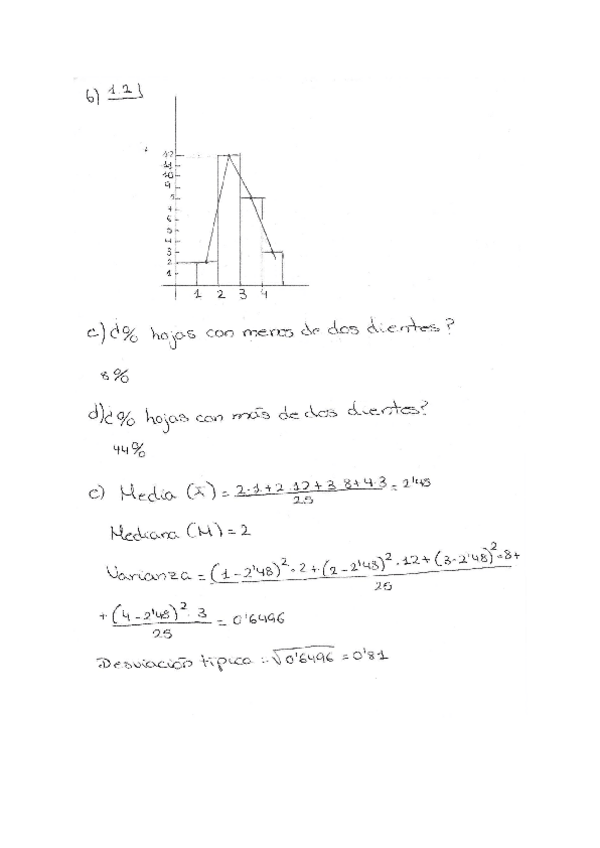 b) 1.2)
12
11
10
9
8
7
6
5
4
3
2
1
1 2 3 4
c) ¿% hojas con menos de dos dientes?
8%
d) ¿% hojas con más de dos dientes?
44%
e) Media (x̄) = (2·1+2·12+3·8+4·3)/25 = 2'48
Mediana (M) = 2
Varianza = ((1-2'48)²·2+(2-2'48)²·12+(3-2'48)²·8+)/25
+((4-2'48)²·3)/25 = 0'6496
Desviación típica = √0'6496 = 0'81